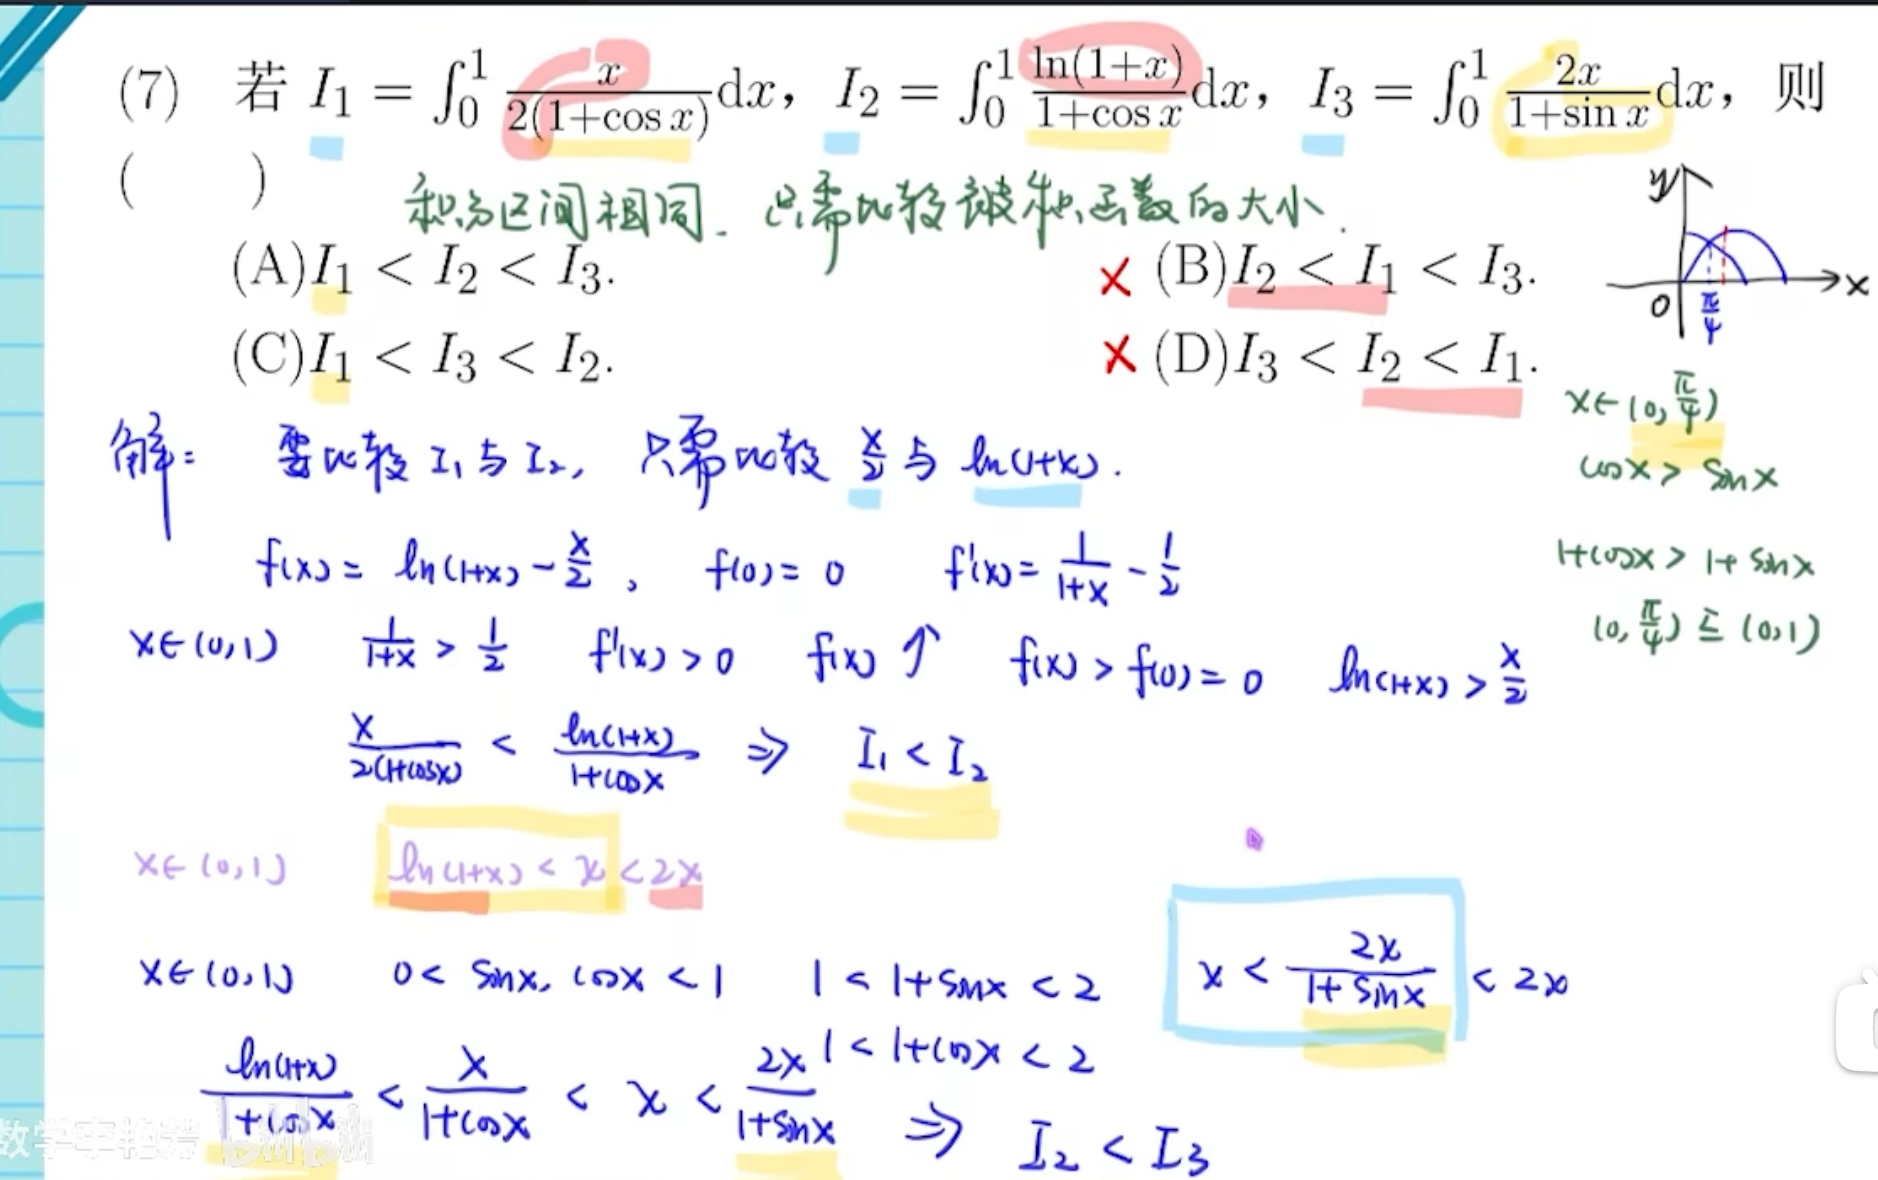 (7) 若 I₁ = ∫₀¹ x/(2(1+cos x)) dx, I₂ = ∫₀¹ ln(1+x)/(1+cos x) dx, I₃ = ∫₀¹ 2x/(1+sin x) dx, 则
( )
积分区间相同. 只需比较被积函数的大小.
(A)I₁ < I₂ < I₃.
× (B)I₂ < I₁ < I₃.
(C)I₁ < I₃ < I₂.
× (D)I₃ < I₂ < I₁.
y
0 π/4 x
x∈(0,π/4)
cosx > sinx
1+cosx > 1+sinx
(0,π/4) ⊆ (0,1)
解: 要比较 I₁与I₂, 只需比较 x/2 与 ln(1+x).
f(x) = ln(1+x) - x/2, f(0) = 0 f'(x) = 1/(1+x) - 1/2
x∈(0,1) 1/(1+x) > 1/2 f'(x) > 0 f(x)↑ f(x) > f(0) = 0 ln(1+x) > x/2
x/(2(1+cosx)) < ln(1+x)/(1+cosx) ⇒ I₁ < I₂
x∈(0,1) ln(1+x) < x < 2x
x∈(0,1) 0 < sinx, cosx < 1 1 < 1+sinx < 2 x < 2x/(1+sinx) < 2x
1 < 1+cosx < 2
ln(1+x)/(1+cosx) < x/(1+cosx) < x < 2x/(1+sinx) ⇒ I₂ < I₃
bilibili